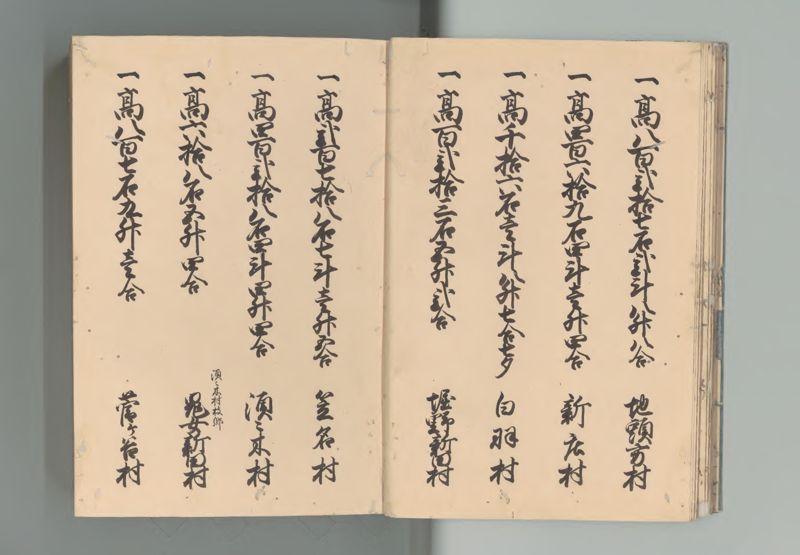 一高八百弐拾七石弐斗八升八合 地頭方村
一高四百六拾九石四斗壱升四合 新庄村
一高千拾六石壱斗八升七合七夕 白羽村
一高百弐拾三石五升弐合 堀野新田村
一高弐百七拾八石七斗壱升五合 笠名村
一高四百弐拾八石四斗四升四合 須々木村
須々木村枝郷
一高六拾八石五升四合 鬼女新田村
一高八百七石九升壱合 菅ヶ谷村